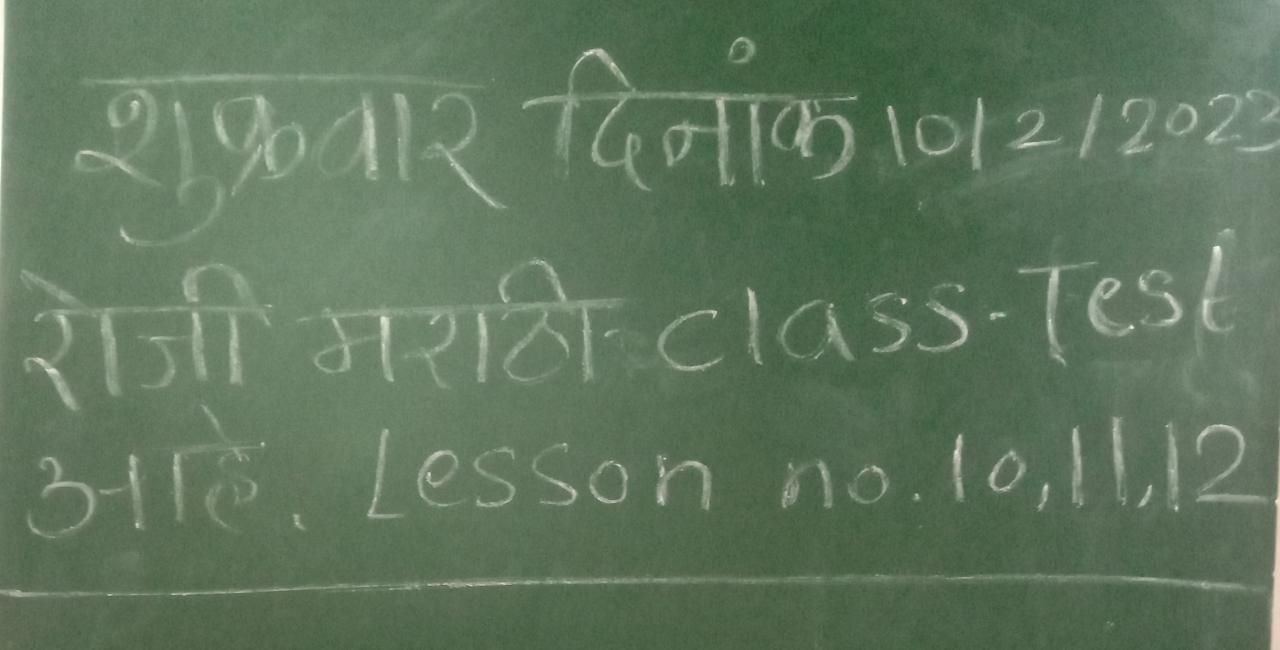 शुक्रवार दिनांक 10/2/2023
रोजी मराठी class-Test
आहे. Lesson no. 10,11,12